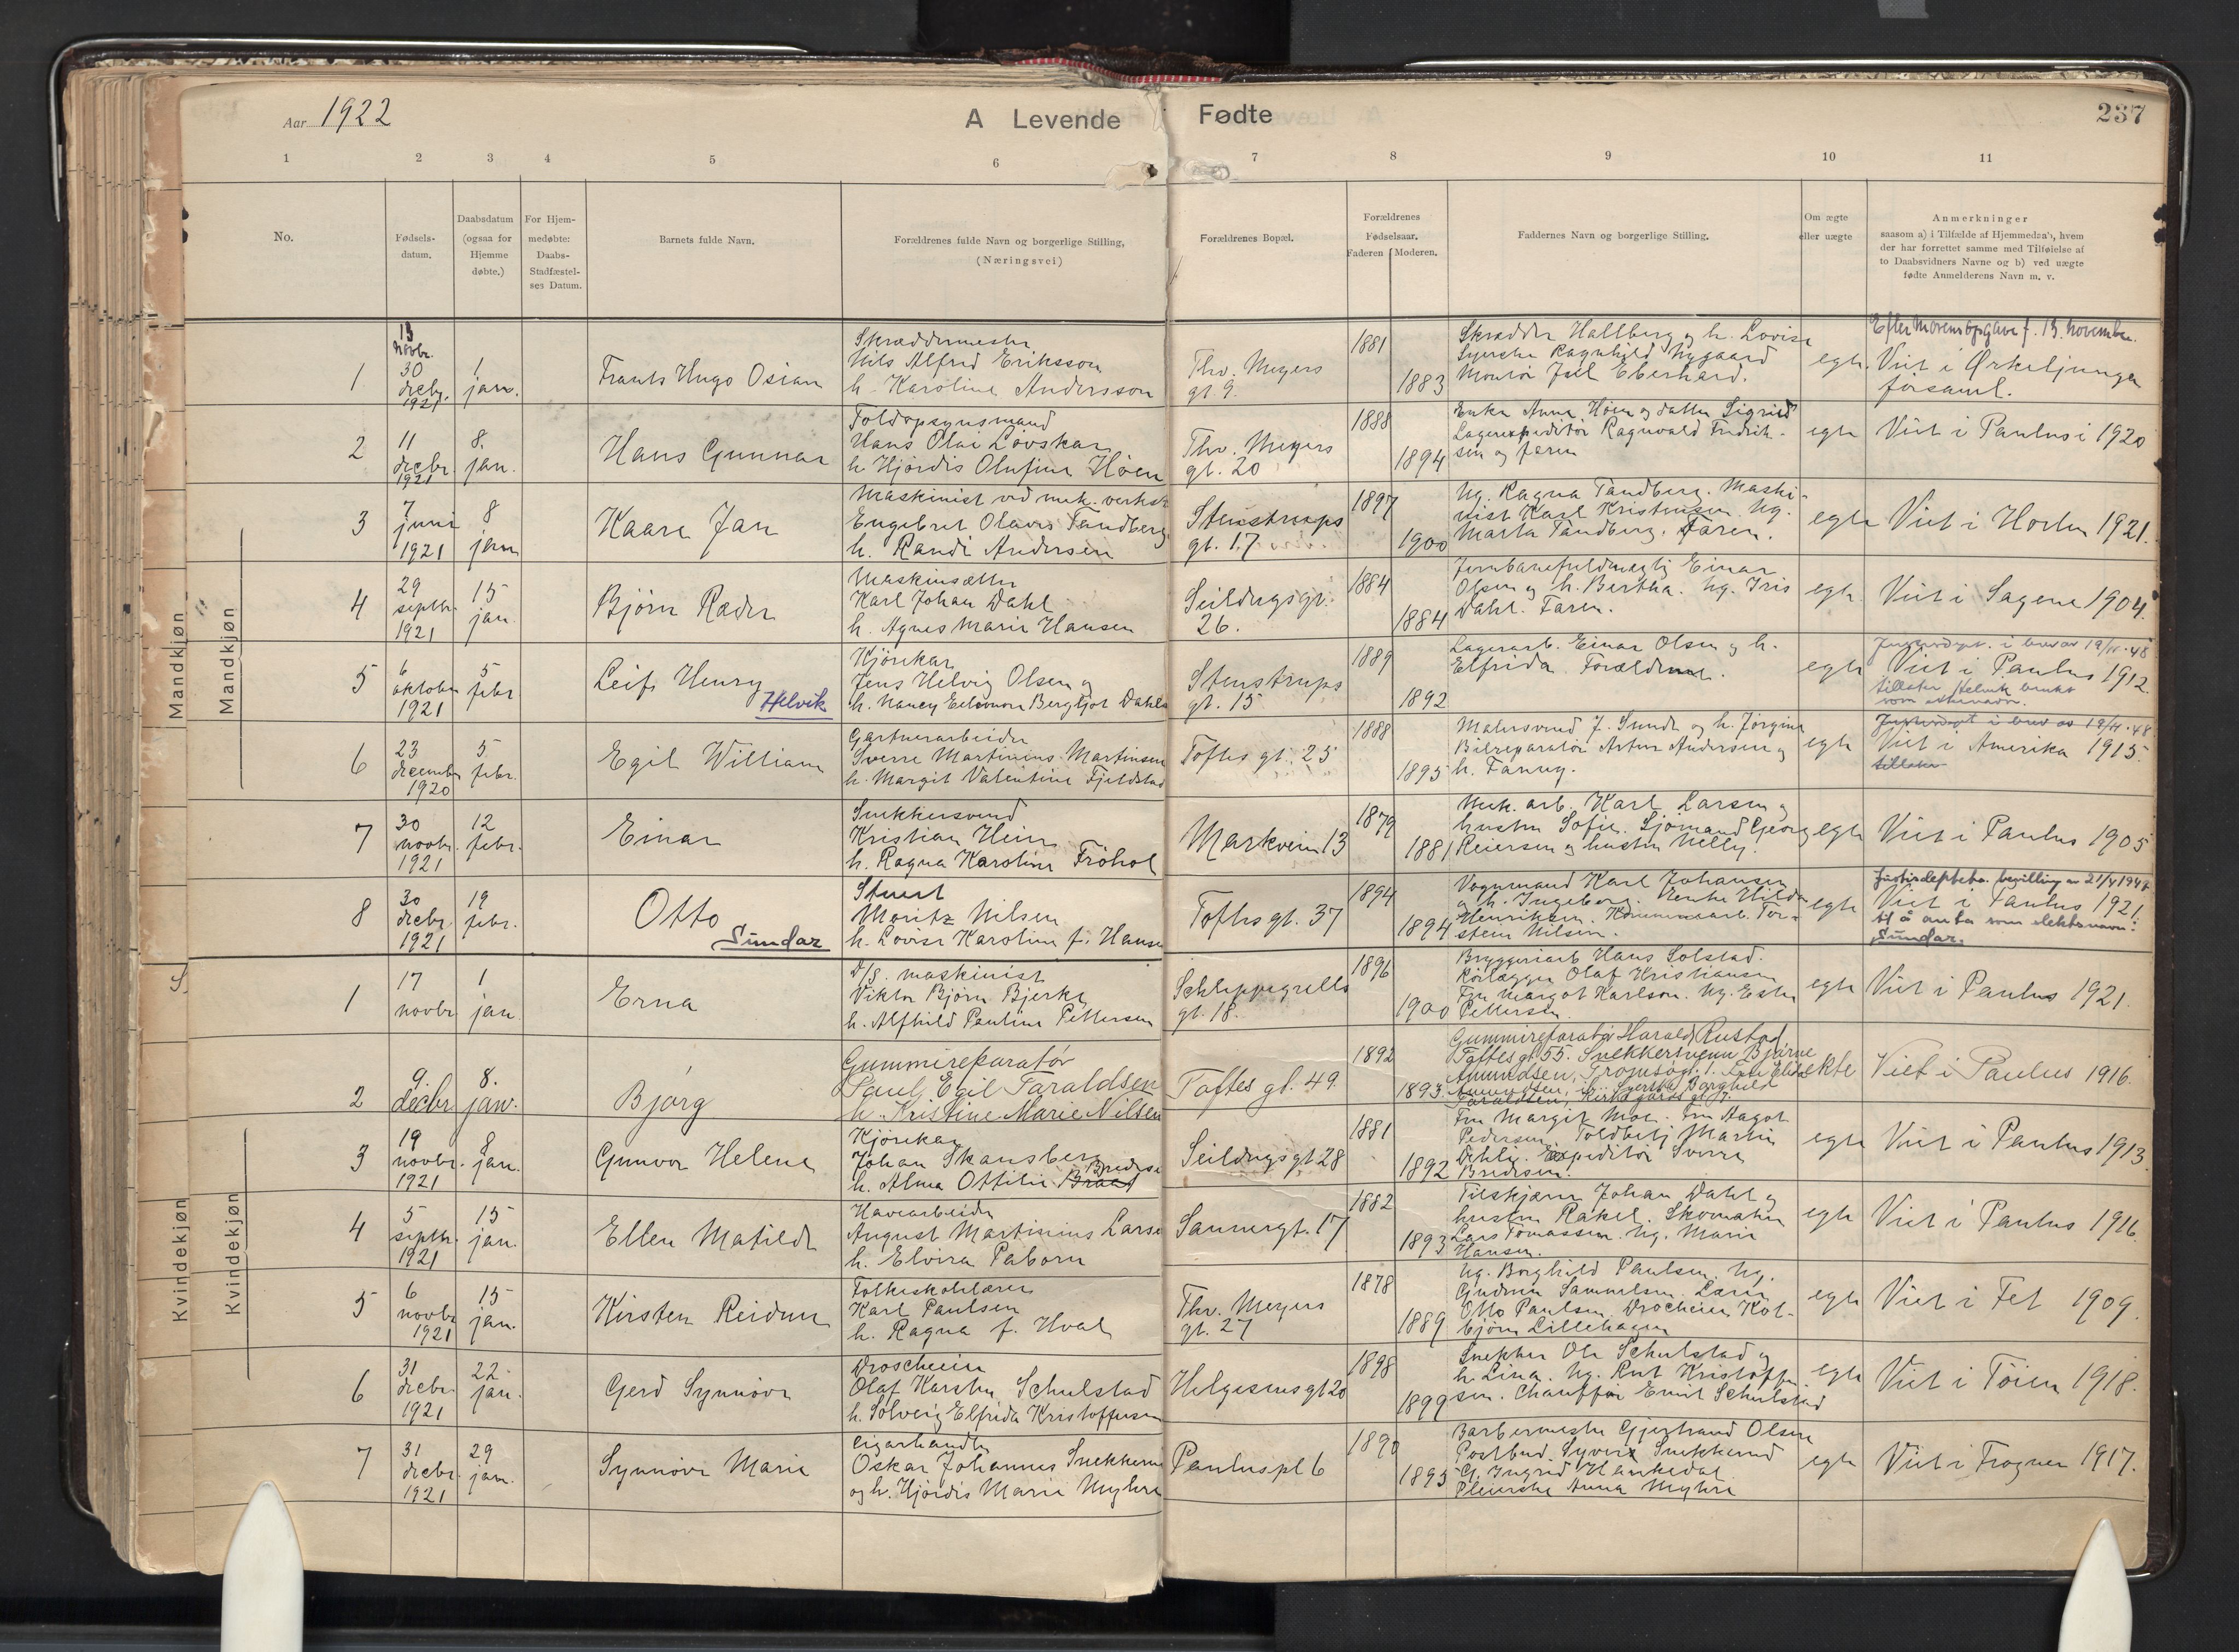 Aar 1922
A Levende Fødte
237
1 2 3 4 5 6 7 8 9 10 11
No.
Fødsels-
datum.
Daabsdatum
(ogsaa for
Hjemme
døbte.)
For Hjem-
medøbte:
Daabs-
Stadfæstel-
ses Datum.
Barnets fulde Navn.
Forældrenes fulde Navn og borgerlige Stilling,
(Næringsvei)
Forældrenes Bopæl.
Forældrenes
Fødselsaar.
Faderen Moderen.
Faddernes Navn og borgerlige Stilling.
Om ægte
eller uægte
Anmerkninger
saasom a) i Tilfælde af Hjemmedaab, hvem
der har forrettet samme med Tilføielse af
to Daabsvidners Navne og b) ved uægte
fødte Anmelderens Navn m. v.
Mandkjøn
Mandkjøn
1
13
novbr.
30
decbr.
1921
1
jan.
Frants Hugo Osian
Skræddermester
Nils Alfred Eriksson
h. Karoline Andersson
Thv. Meyers
gt 9.
1881
1883
Skrædder Hallberg og h. Lovise
Syerske Ragnhild Nygaard
Montør Joel Eberhard.
egte.
Efter morens opgave f. 13. november.
Viet i Ørkeljunga
forsaml.
2
11
decbr.
1921
8.
jan.
Hans Gunnar
Toldopsynsmand
Hans Olai Løvskar
h. Hjørdis Olufine Höen
Thv. Meyers
gt. 20
1888
1894
Enke Anna Höen og datter Sigrid
Lagerexpeditör Ragnvald Fredrik-
sen og faren
egte
Viet i Paulus i 1920
3
7
juni
1921
8
jan
Kaare Jan
Maskinist ved mek. verkst
Engebret Olaus Tandberg
h. Randi Andersen
Stenstrups
gt. 17
1897
1900
Ug. Ragna Tandberg. Maski-
nist Karl Kristensen. Ug.
Marta Tandberg. Faren.
egte
Viet i Horten 1921.
4
29
septbr.
1921
15
jan.
Bjørn Ræder
Maskinsætter
Karl Johan Dahl
h. Agnes Marie Hansen
Seildugsgt.
26.
1884
1884
Jernbanefuldmægtig Einar
Olsen og h. Bertha. Ug. Iris
Dahl. Faren.
egte
Viet i Sagene 1904.
5
6
oktober
1921
5
febr
Leif Henry
Helvik
Kjørekar
Jens Helvig Olsen og
h. Nancy Eleonore Bergljot Dahl
Stenstrups
gt. 15
1889
1892
Lagerarb. Einar Olsen og h.
Elfrida. Forældrene.
egte
i brev av 19/11-48
Viet i Paulus 1912.
tillater Helvik brukt
som etternavn.
6
23
decembr
1920
5
febr.
Egil William
Gartnerarbeider
Sverre Martinius Martinsen
h. Margit Valentine Fjeldstad
Toftes gt. 25
1888
1895
Malersvend J. Sunde og h. Jørgine
Bilreparatör Artur Andersen og
h. Fanny.
egte
i brev av 19/11-48
Viet i Amerika 1915.
tillater
7
30
novbr.
1921
12
febr.
Einar
Snekkersvend
Kristian Hein
h. Ragna Karoline Fröhol
Markvein 13
1879
1881
Mek. arb. Karl Larsen og
hustru Sofie. Sjömand Georg
Reiersen og hustru Nelly.
egte
Viet i Paulus 1905
8
30
decbr.
1921
19
febr.
Otto
Sundar
Stuert
Moritz Nilsen
h. Lovise Karoline f. Hansen
Toftes gt. 37
1894
1894
Vognmand Karl Johansen
og h. Ingeborg. Enke Hilda
Henriksen. Kommunearb. Tor-
stein Nilsen.
egte
Justisdeptets bevilling av 21/4 1947
Viet i Paulus 1921.
til å anta som slektsnavn:
Sundar.
Kvindekjøn
Kvindekjøn
1
17
novbr
1
jan.
Erna
D/S. maskinist
Viktor Bjørn Bjerke
h. Alfhild Pauline Pettersen
Schleppegrells
gt. 18.
1896
1900
Bryggeriarb Hans Solstad.
Rörlægger Olaf Kristiansen
Fru Margot Karlson. Ug. Ester
Pettersen.
egte
Viet i Paulus 1921.
2
9.
decbr
8.
jan.
Bjørg
Gummireparatör
Paul Egil Taraldsen
h. Kristine Marie Nilsen
Toftes gt. 49
1892
1893
Gummireparatör Harald Rustad
Toftesgt 55. Snekkersvenn Bjarne
Amundsen, Tromsøgt. 1. Fru Elise
Amundsen, ib. Syerske Borghild
Taraldsen, Kirkegårdsgt 7.
ekte
Viet i Paulus 1916.
3
19
novbr.
1921
8
jan.
Gunvor Helene
Kjörekar
Johan Skansberg
h. Alma Ottilie Bredesen
Seildugsgt 28
1881
1892
Fru Margit Moe. Fru Aagot
Pedersen. Toldbetj Martin
Dehli. Expeditör Sverre
Bredesen.
egte
Viet i Paulus 1913.
4
5
septbr.
1921
15
jan.
Ellen Matilde
Havearbeider
August Martinius Larsen
h. Elvira Paborn
Sannergt. 17
1882
1893
Tilskjærer Johan Dahl og
hustru Rakel. Skomaker
Lars Tomassen. Ug. Marie
Hansen.
egte
Viet i Paulus 1916.
5
6
novbr
1921
15
jan.
Kirsten Reidun
Folkeskolelærer
Karl Paulsen
h. Ragna f. Hval
Thv. Meyers
gt. 27
1878
1889
Ug. Borghild Paulsen. Ug.
Gudrun Samuelsen. Lærer
Otto Paulsen. Drocheeier Kol-
björn Lillehagen
egte
Viet i Fet 1909.
6
31
decbr.
1921
22
jan.
Gerd Synnöve
Droscheeier
Olaf Karsten Schulstad
h. Solveig Elfrida Kristoffersen
Helgesensgt 20
1898
1899
Snekker Ole Schulstad og
h. Lina. Ug. Rut Kristoffer-
sen. Chauffør Emil Schulstad
egte
Viet i Töien 1918.
7
31
decbr.
1921
29
jan.
Synnöve Marie
Cigarhandler
Oskar Johannes Snekkerud
og h. Hjördis Marie Myhre
Pauluspl 6
1890
1895
Barbermester Gjertrand Olsen
Postbud Syver Snekkerud
Ingrid Hankedal.
Pleierske Anna Myhre
egte
Viet i Frogner 1917.